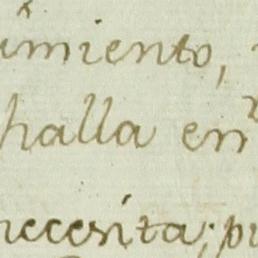 imiento,
halla en
necesita; pu